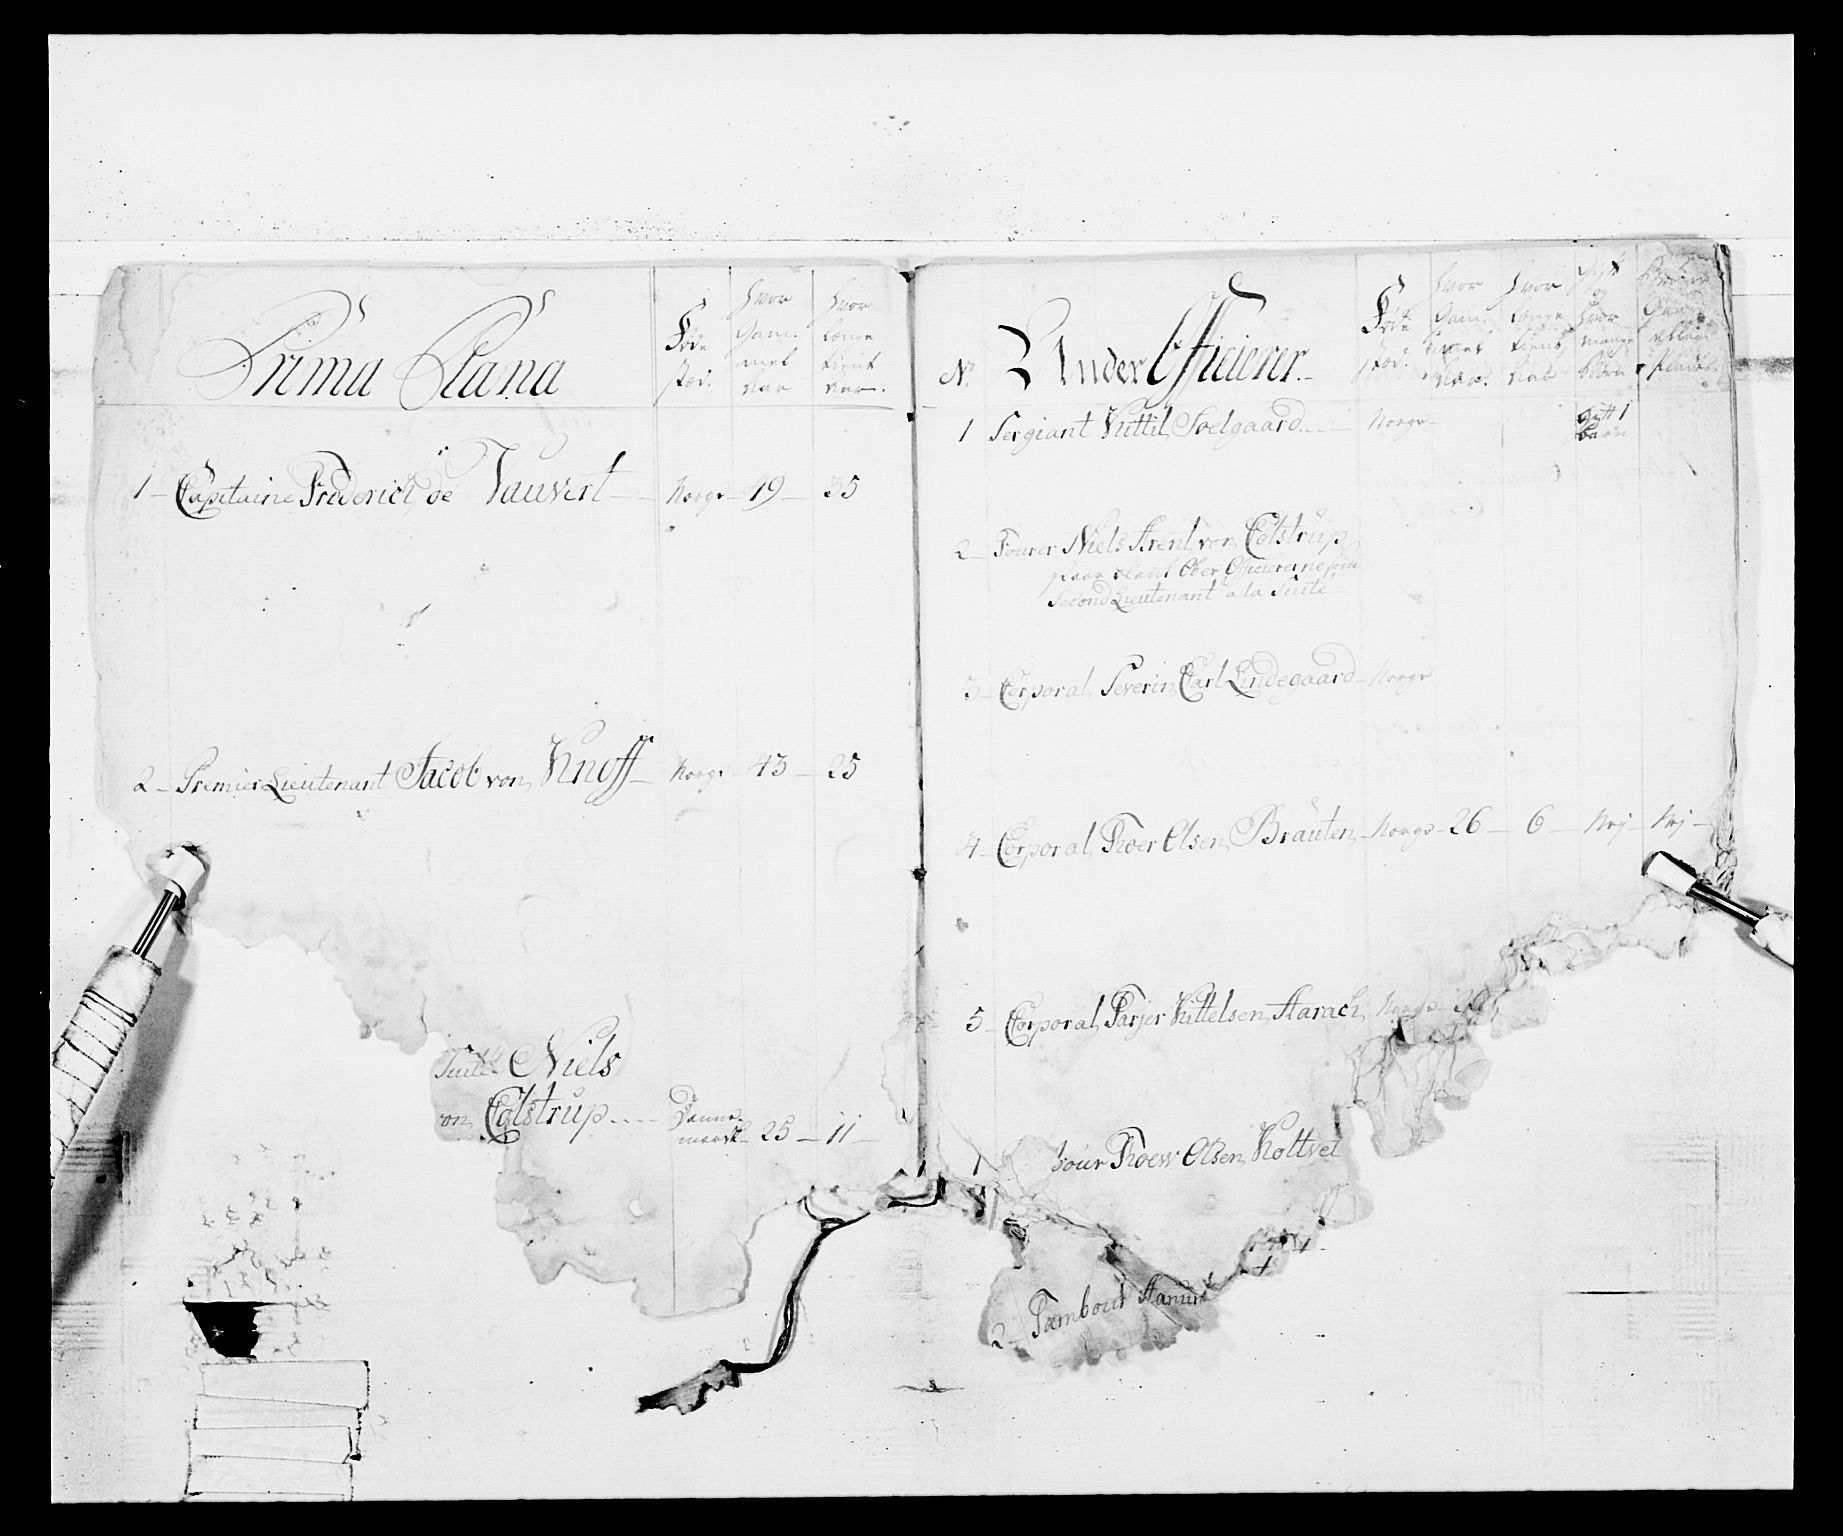 Prima Plana
Føde stæd.
Hvor Gam. mel aar
Hvor længe tient aar.
1 Capitaine Frederich de Vauvert Norge 49 35
2 Premier Lieutenant Jacob von Knoff Norge 43 25
Suite Niels
von Colstrup Danne- mark 25 11
No. Under Officierer
Føde stæd.
Hvor Gam. mel aar.
Hvor længe tient aar
Gift og Hvor mange Børn
1 Sergiant Kittil Soelgaard Norge gift 1 barn
2 Fourer Niels Arent von Colstrup
staar blant Ober Officiererne som
Second Lieutenant a la Suite
3 Corporal Severin Carl Lindegaard Norge
4 Corporal Thoer Olsen Bräuten Norge 26 6 Nej Nej
5 Corporal Tarjer Kittelsen Aarach Norge
1 bour Thoew Olsen Holtvet
2 Tambour